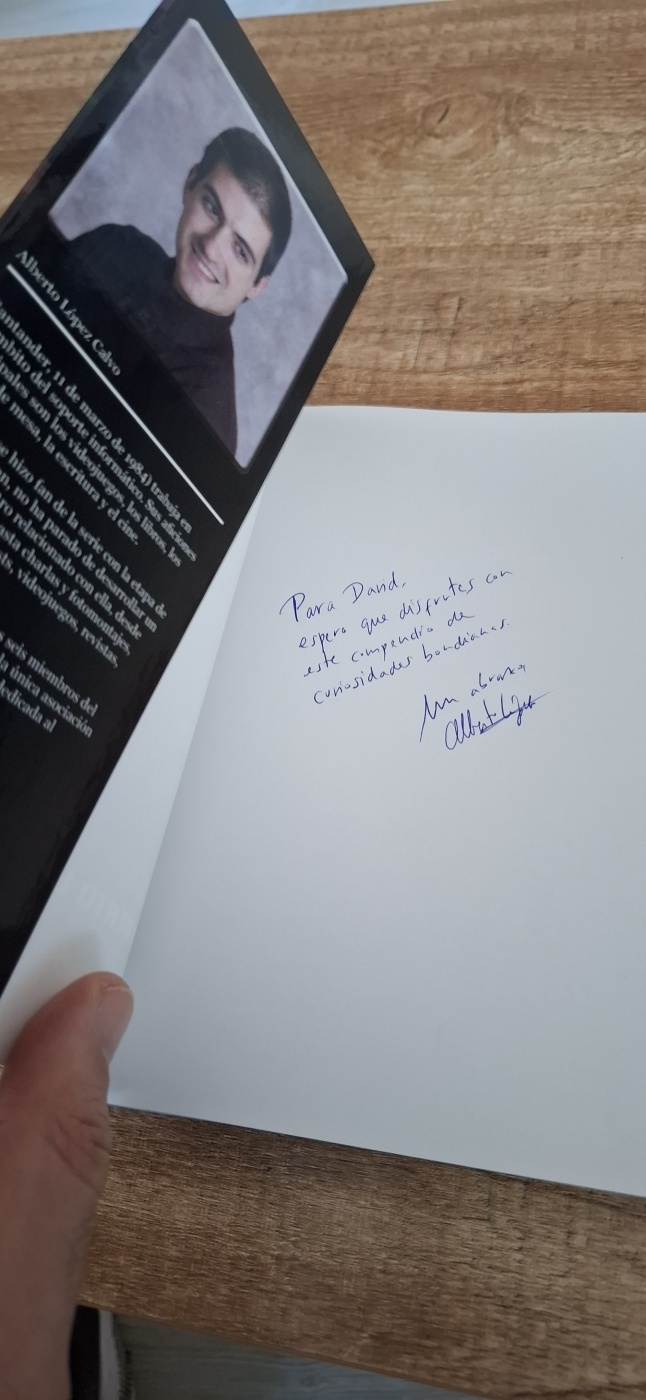 Alberto López Calvo
Santander, 11 de marzo de 1984) trabaja en
ámbito del soporte informático. Sus aficiones
son los videojuegos, los libros, los
de mesa, la escritura y el cine.
se hizo fan de la serie con la etapa de
no ha parado de desarrollar un
relacionado con ella, desde
hasta charlas y fotomontajes,
videojuegos, revistas,
seis miembros del
la única asociación
dedicada al
Para David,
espero que disfrutes con
este compendio de
curiosidades bondianas.
Un abrazo,
Alberto López